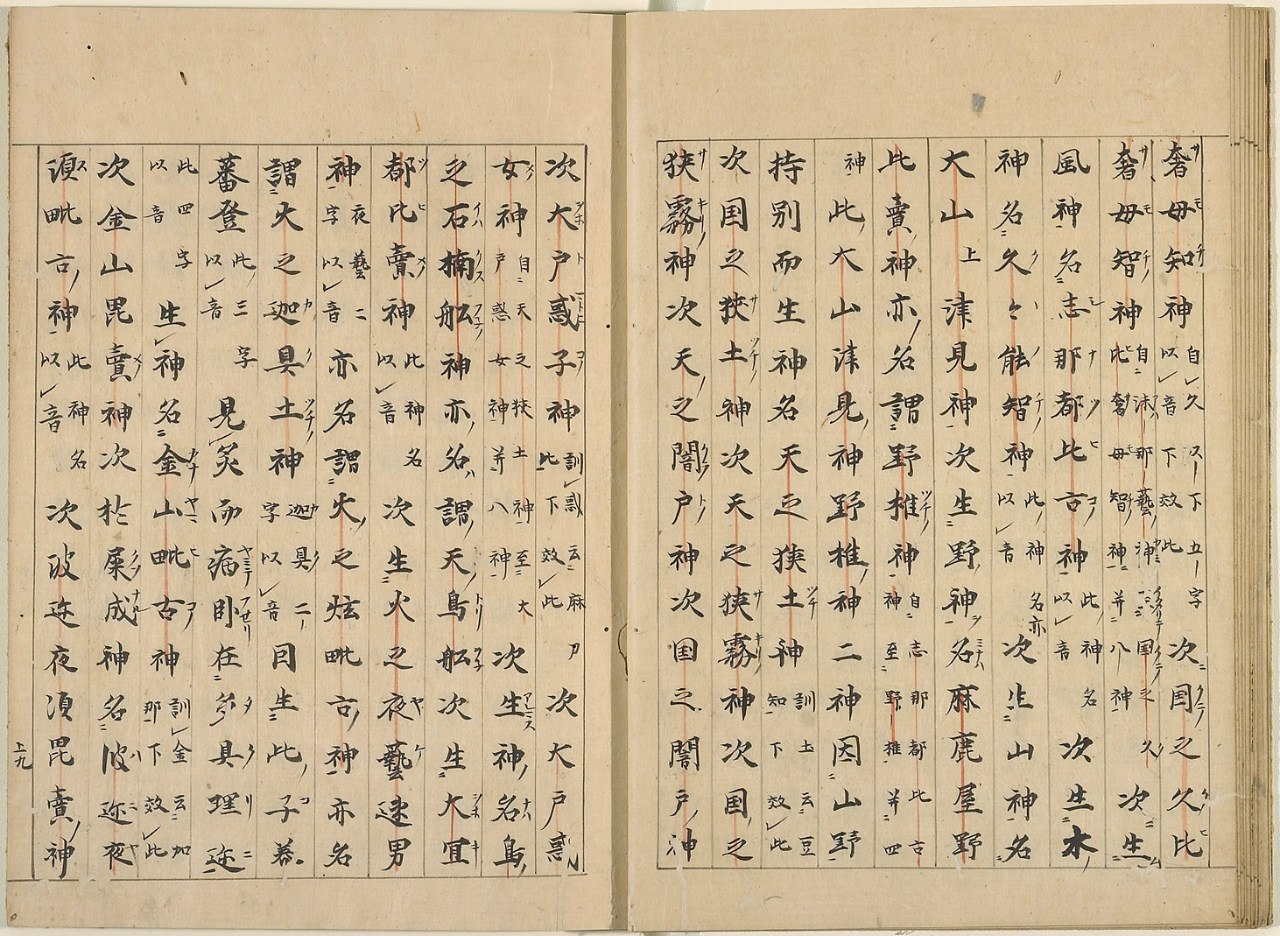 奢母知神自久以下五字以音下效此次国之久比
奢母智神自沫那藝神至国之久比奢母智神并八神次生
風神名志那都比古神此神名以音次生木
神名久々能智神此神名亦以音次生山神名
大山上津見神次生野神名麻鹿屋野
比賣神亦名謂野椎神自志那都比古神至野椎并四
神此大山津見神野椎神二神因山野
持別而生神名天之狭土神訓土云豆知下效此
次国之狭土神次天之狭霧神次国之
狭霧神次天之闇戸神次国之闇戸神
次大戸惑子神訓惑云麻刀比下效此次大戸惑
女神自天之狭土神至大戸惑女神并八神次生神名鳥
之石楠舩神亦名謂天鳥舩次生大宜
都比賣神此神名以音次生火之夜藝速男
神夜藝二字以音亦名謂火之炫毗古神亦名
謂火之迦具土神迦具二字以音因生此子
蕃登此三字以音見炙而病卧在多具理迩
此四字以音生神名金山毗古神訓金云加那下效此
次金山毘賣神次於屎成神名波迩夜
湏毗古神此神名以音次波迩夜湏毘賣神
上九